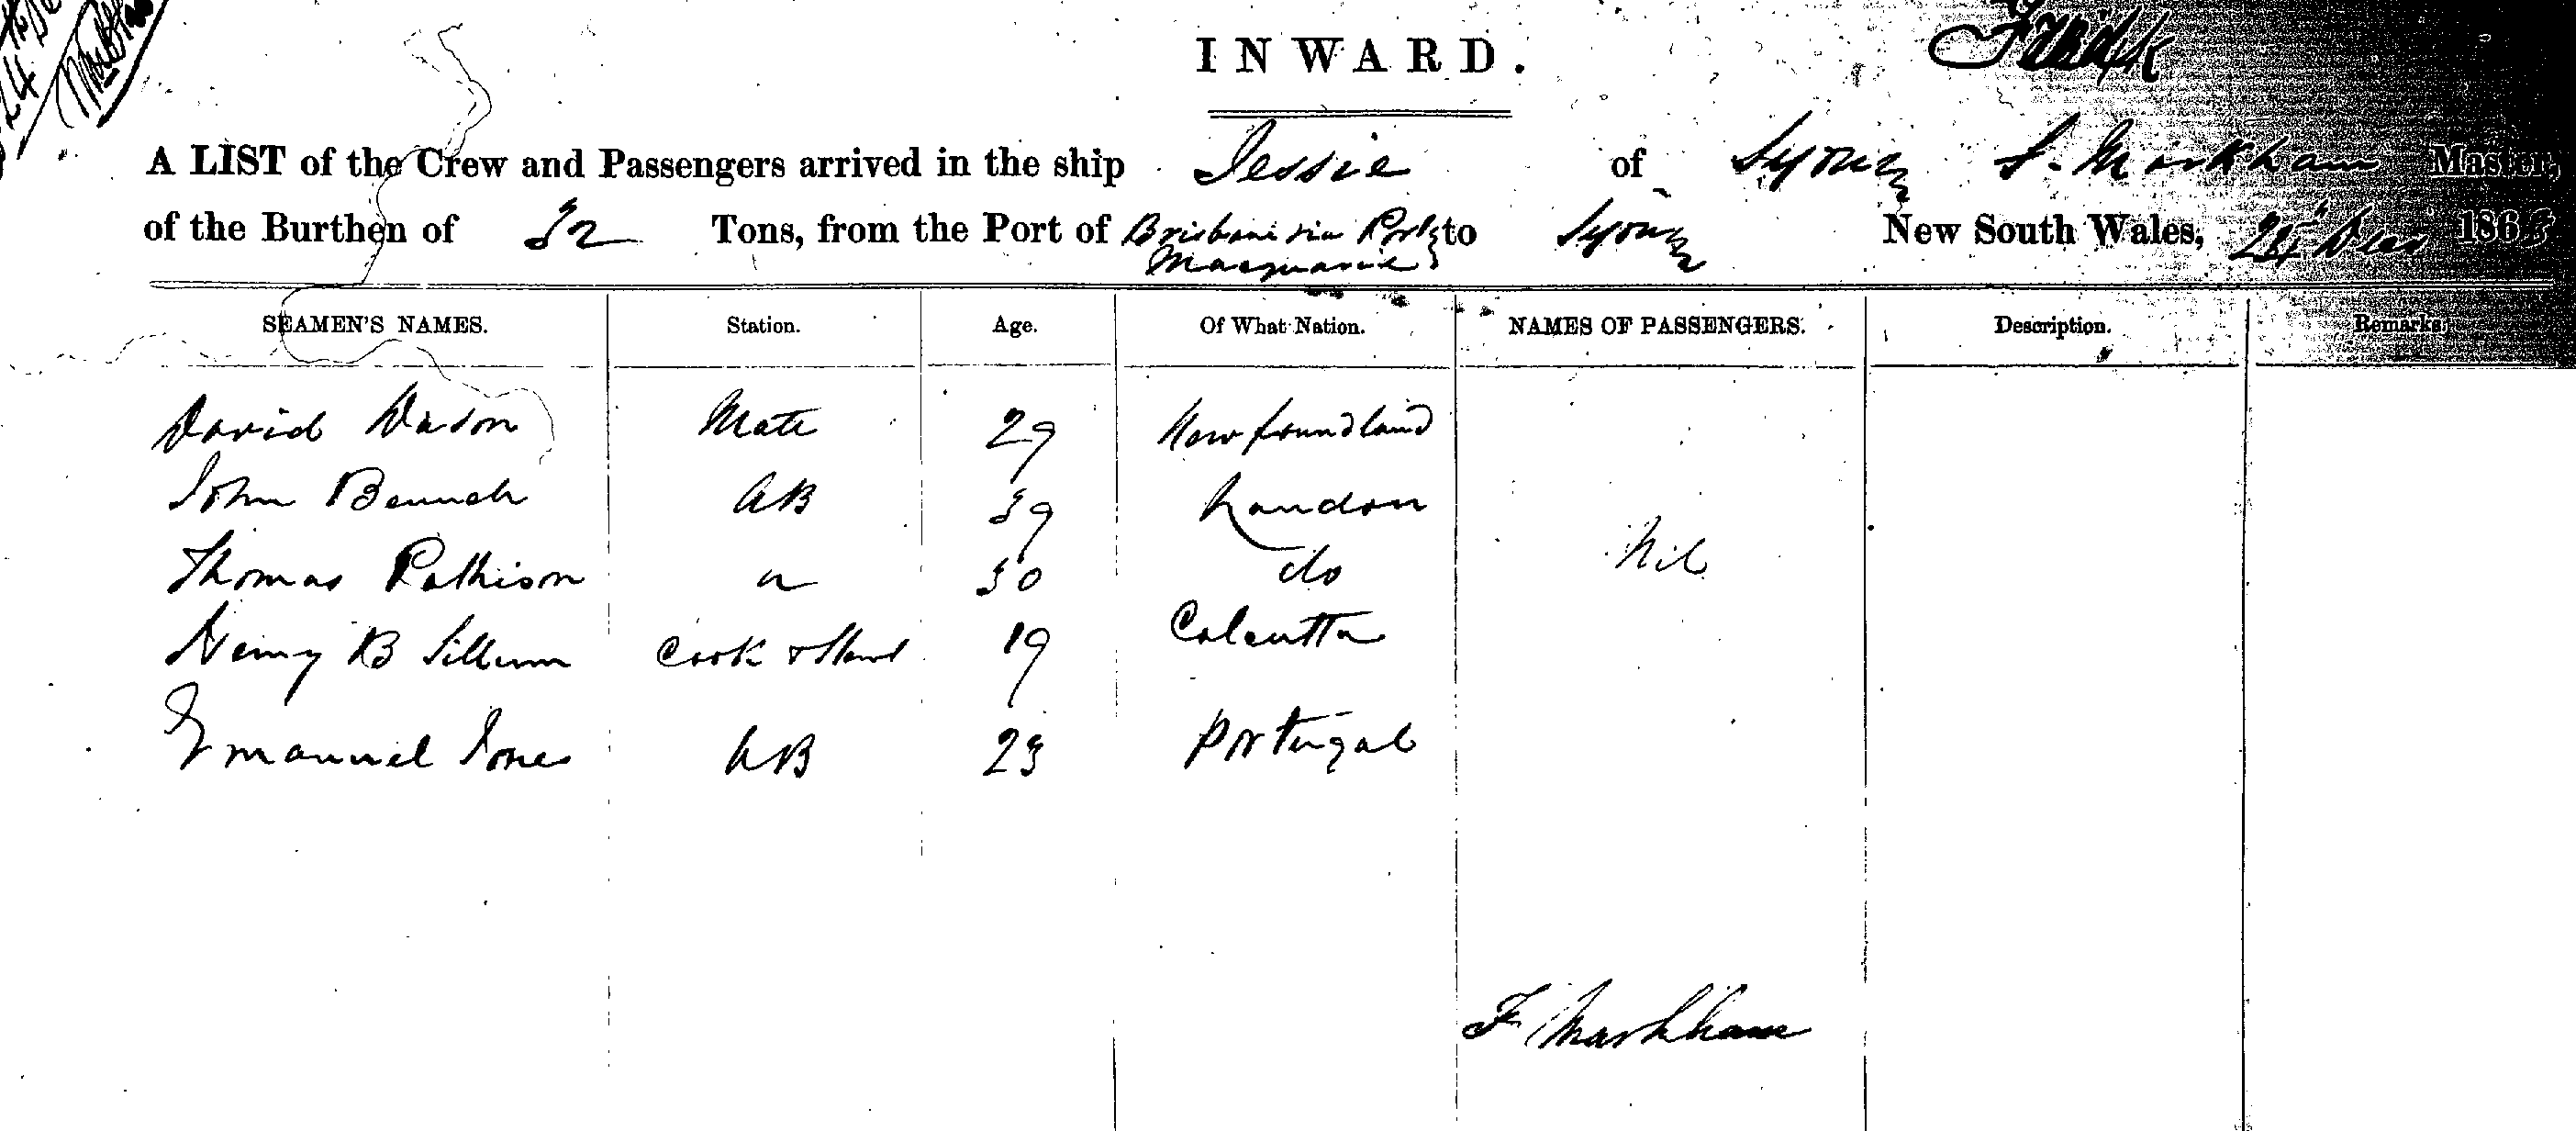 INWARD.
A LIST of the Crew and Passengers arrived in the ship Jessie of Sydney F. Markham Master,
of the Burthen of 52 Tons, from the Port of Brisbane via Port Macquarie to Sydney New South Wales, 24 Dec 1863
SEAMEN'S NAMES. Station. Age. Of What Nation. NAMES OF PASSENGERS. Description. Remarks.
David Mate 29 Newfoundland
John Bennett AB 39 London
Thomas Pattison " 30 do Nil
Henry B Cook & Stewd 19 Calcutta
Emanuel Jones AB 23 Portugal
F Markham